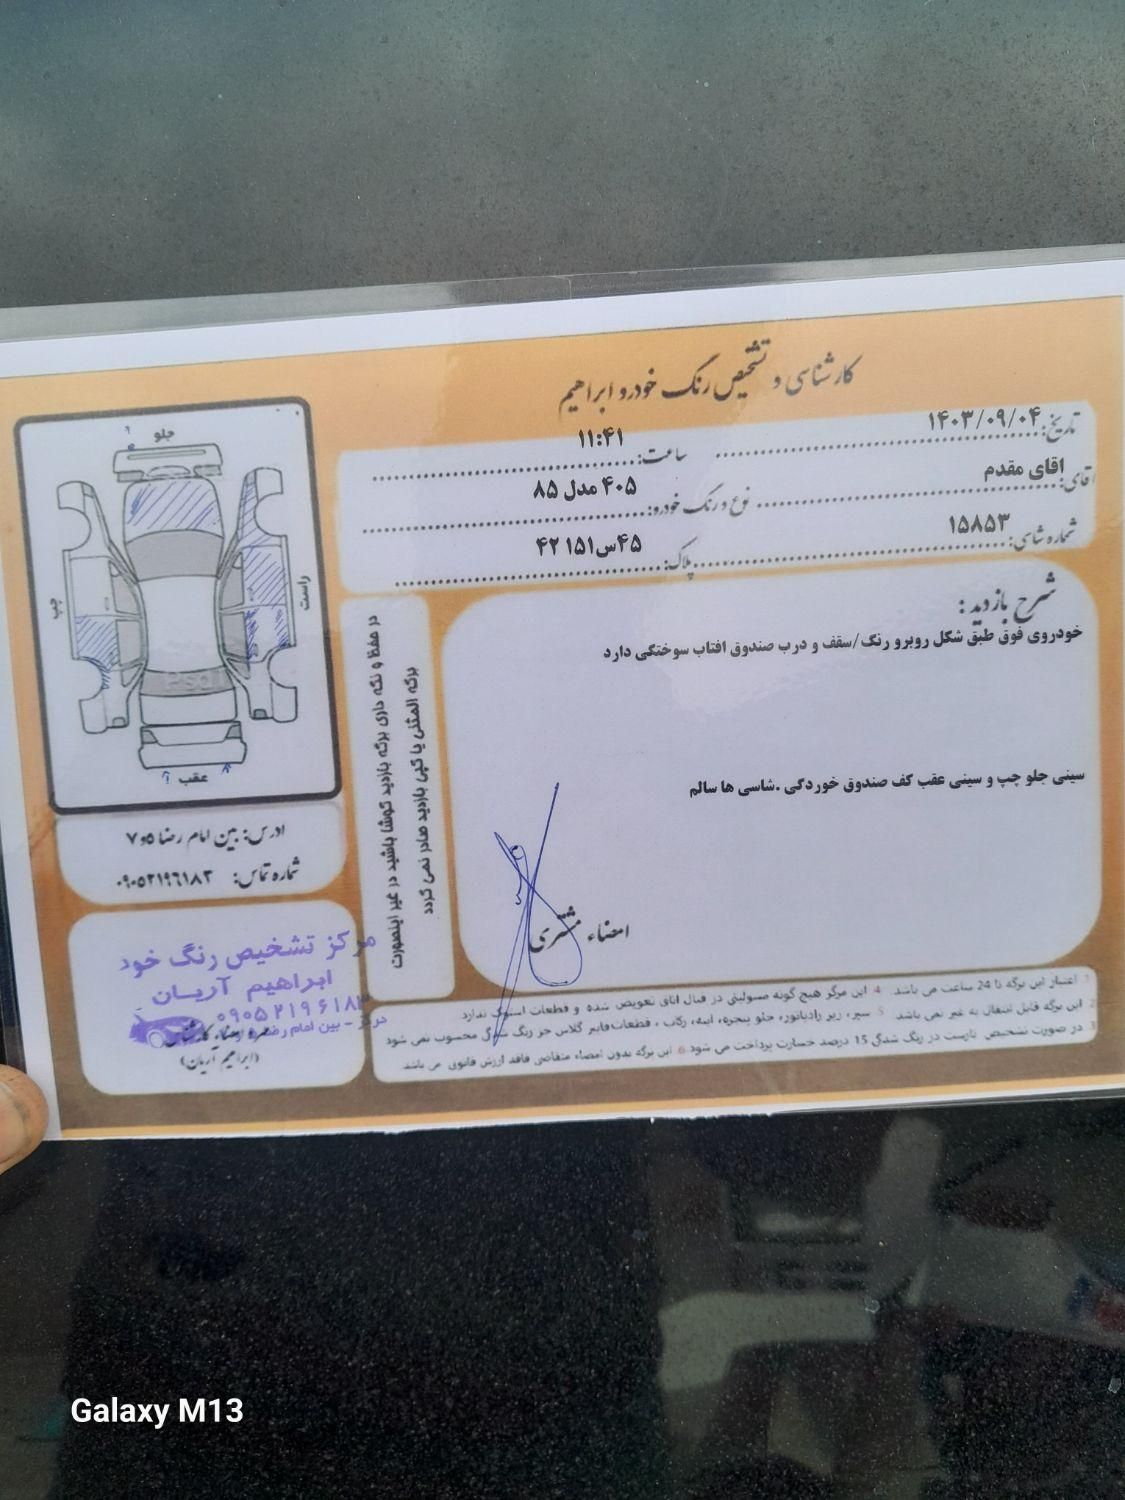 کارشناسی و تشخیص رنگ خودرو ابراهیم
تاریخ: ۱۴۰۳/۰۹/۰۴
ساعت: ۱۱:۴۱
آقای: اقای مقدم
نوع و رنگ خودرو: ۴۰۵ مدل ۸۵
شماره شاسی: ۱۵۸۵۳
پلاک: ۴۵س۱۵۱ ۴۲
شرح بازدید :
خودروی فوق طبق شکل روبرو رنگ /سقف و درب صندوق افتاب سوختگی دارد
سینی جلو چپ و سینی عقب کف صندوق خوردگی .شاسی ها سالم
امضاء مشتری
جلو
راست
چپ
عقب
در حفظ و نگه داری برگه بازدید کوشا باشید در غیر اینصورت
برگه المثنی یا کپی بازدید صادر نمی گردد
ادرس: بین امام رضا ۵و۷
شماره تماس: ۰۹۰۵۲۱۹۶۱۸۳
مرکز تشخیص رنگ خود
ابراهیم آریـان
۰۹۰۵۲۱۹۶۱۸۳
(ابراهیم آریان)
1 اعتبار این برگه تا 24 ساعت می باشد.
2 این برگه قابل انتقال به غیر نمی باشد
3 در صورت تشخیص نادرست در رنگ شدگی 15 درصد خسارت پرداخت می شود
4 این مرکز هیچ گونه مسولیتی در قبال اتاق تعویض شده و قطعات استوک ندارد
5 سپر، زیر رادیاتور، جلو پنجره، آینه، رکاب ، قطعات فایبر گلاس جز رنگ شدگی محسوب نمی شود
6 این برگه بدون امضاء متقاضی فاقد ارزش قانونی می باشد.
Galaxy M13